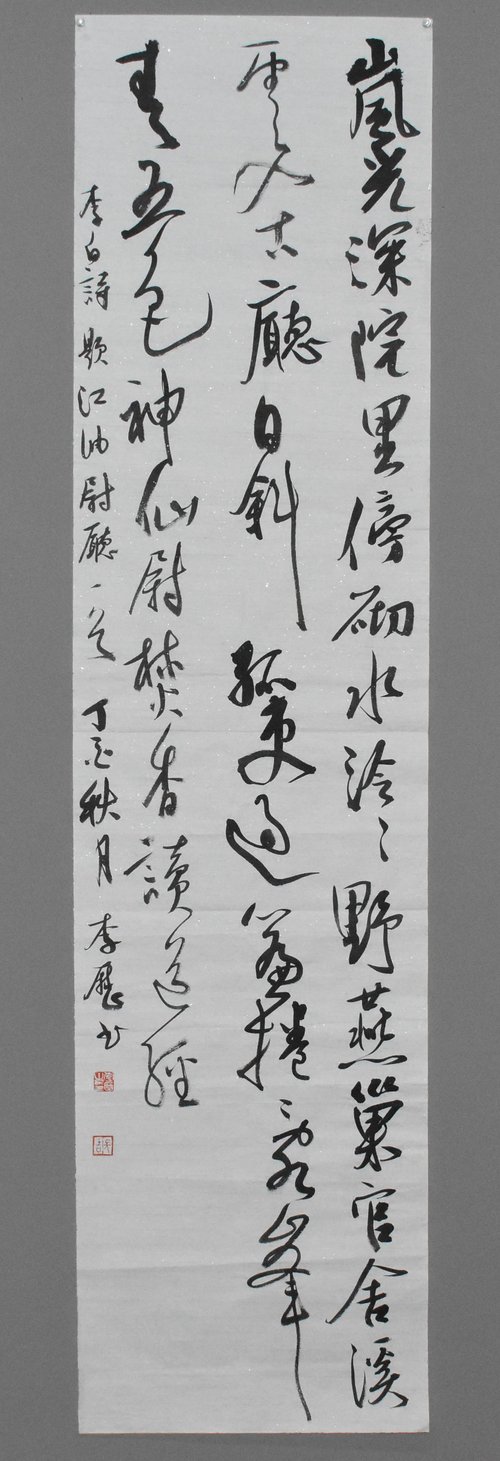 嵐光深院里傍砌水泠〻野燕巢官舍溪
雲入古廳日斜孤吏過簾捲亂峰
青五色神仙尉焚香讀道經
李白詩 題江油尉廳一首 丁亥秋月 李 书